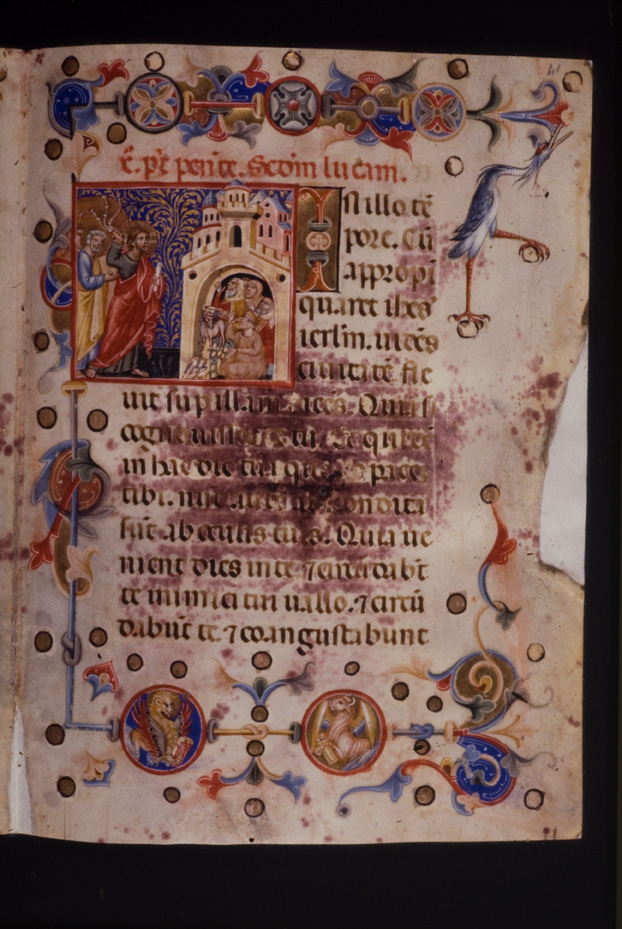 pꝰt pent̄e. Scd̄m lucam.
In illo tē
pore. Cū
appropi
quaret ih̄es
ierl̄m. uidēs
ciuitatē fle
uit sup illam dicēs. Quia si
cognouisses ⁊ tu. ⁊ quidē
in hac die tua que ad pacē
tibi. nūc autē abscondita
sūt ab oculis tuis. Quia ue
nient dies in te. ⁊ circūdabūt
te inimici tui uallo. ⁊ circū
dabūt te ⁊ coangustabunt